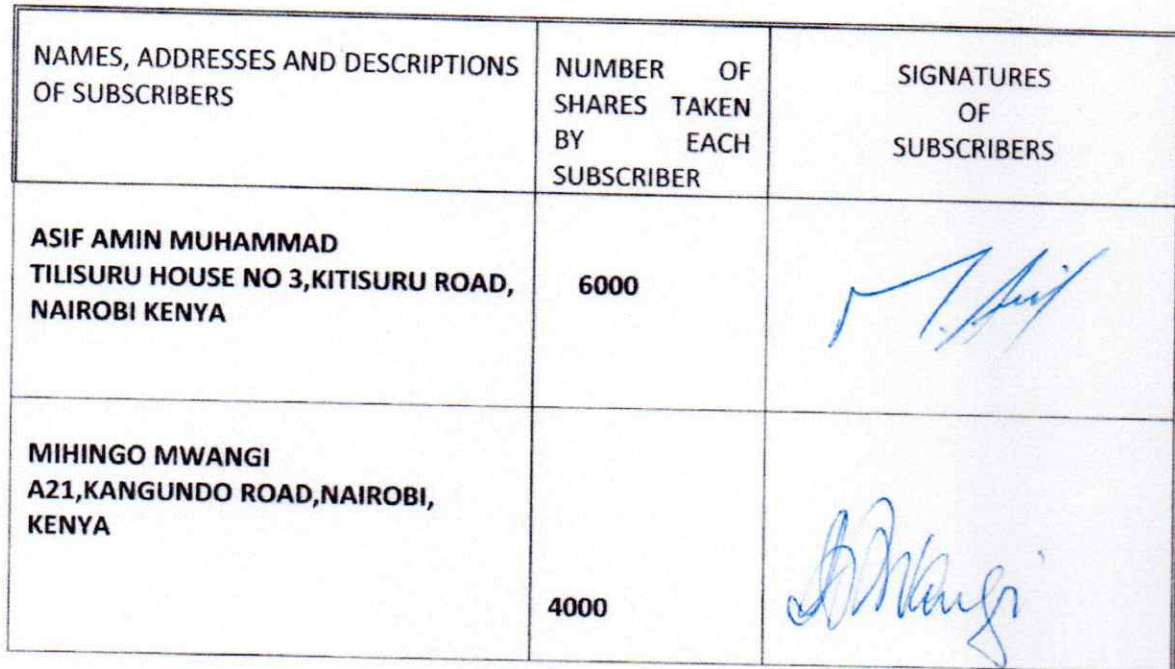 NAMES, ADDRESSES AND DESCRIPTIONS
OF SUBSCRIBERS
NUMBER OF
SHARES TAKEN
BY EACH
SUBSCRIBER
SIGNATURES
OF
SUBSCRIBERS
ASIF AMIN MUHAMMAD
TILISURU HOUSE NO 3,KITISURU ROAD,
NAIROBI KENYA
6000
M. Asif
MIHINGO MWANGI
A21,KANGUNDO ROAD,NAIROBI,
KENYA
4000
Mwangi